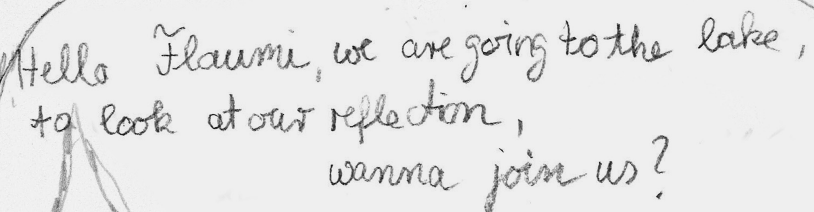 Hello Flaumi, we are going to the lake,
to look at our reflection,
wanna join us?